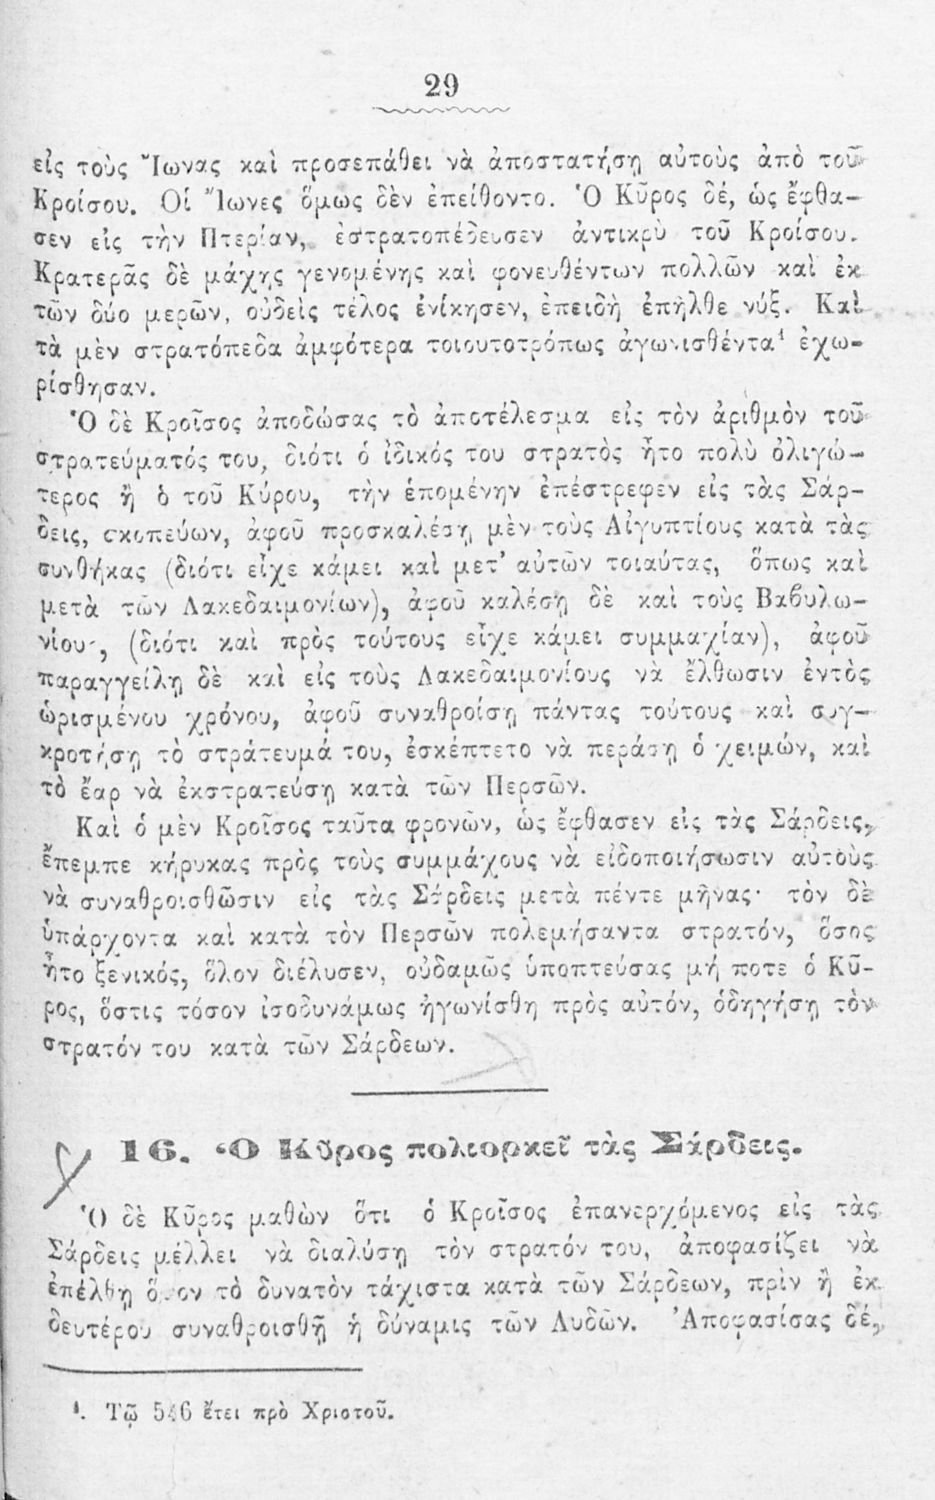 29
εἰς τοὺς Ἴωνας καὶ προσεπάθει νὰ ἀποστατήσῃ αὐτοὺς ἀπὸ τοῦ
Κροίσου. Οἱ Ἴωνες ὅμως δὲν ἐπείθοντο. Ὁ Κῦρος δέ, ὡς ἔφθα-
σεν εἰς τὴν Πτερίαν, ἐστρατοπέδευσεν ἀντικρὺ τοῦ Κροίσου.
Κρατερᾶς δὲ μάχης γενομένης καὶ φονευθέντων πολλῶν καὶ ἐκ
τῶν δύο μερῶν, οὐδεὶς τέλος ἐνίκησεν, ἐπειδὴ ἐπῆλθε νύξ. Καὶ
τὰ μὲν στρατόπεδα ἀμφότερα τοιουτοτρόπως ἀγωνισθέντα¹ ἐχω-
ρίσθησαν.
Ὁ δὲ Κροῖσος ἀποδώσας τὸ ἀποτέλεσμα εἰς τὸν ἀριθμὸν τοῦ
στρατεύματός του, διότι ὁ ἰδικός του στρατὸς ἦτο πολὺ ὀλιγώ-
τερος ἢ ὁ τοῦ Κύρου, τὴν ἑπομένην ἐπέστρεφεν εἰς τὰς Σάρ-
δεις, σκοπεύων, ἀφοῦ προσκαλέσῃ μὲν τοὺς Αἰγυπτίους κατὰ τὰς
συνθήκας (διότι εἶχε κάμει καὶ μετ’ αὐτῶν τοιαύτας, ὅπως καὶ
μετὰ τῶν Λακεδαιμονίων), ἀφοῦ καλέσῃ δὲ καὶ τοὺς Βαβυλω-
νίους, (διότι καὶ πρὸς τούτους εἶχε κάμει συμμαχίαν), ἀφοῦ
παραγγείλῃ δὲ καὶ εἰς τοὺς Λακεδαιμονίους νὰ ἔλθωσιν ἐντὸς
ὡρισμένου χρόνου, ἀφοῦ συναθροίσῃ πάντας τούτους καὶ συγ-
κροτήσῃ τὸ στράτευμά του, ἐσκέπτετο νὰ περάσῃ ὁ χειμών, καὶ
τὸ ἔαρ νὰ ἐκστρατεύσῃ κατὰ τῶν Περσῶν.
Καὶ ὁ μὲν Κροῖσος ταῦτα φρονῶν, ὡς ἔφθασεν εἰς τὰς Σάρδεις,
ἔπεμπε κήρυκας πρὸς τοὺς συμμάχους νὰ εἰδοποιήσωσιν αὐτοὺς
νὰ συναθροισθῶσιν εἰς τὰς Σάρδεις μετὰ πέντε μῆνας· τὸν δὲ
ὑπάρχοντα καὶ κατὰ τὸν Περσῶν πολεμήσαντα στρατόν, ὅσος
ἦτο ξενικός, ὅλον διέλυσεν, οὐδαμῶς ὑποπτεύσας μή ποτε ὁ Κῦ-
ρος, ὅστις τόσον ἰσοδυνάμως ἠγωνίσθη πρὸς αὐτόν, ὁδηγήσῃ τὸν
στρατόν του κατὰ τῶν Σάρδεων.
16. Ὁ Κῦρος πολιορκεῖ τὰς Σάρδεις.
Ὁ δὲ Κῦρος μαθὼν ὅτι ὁ Κροῖσος ἐπανερχόμενος εἰς τὰς
Σάρδεις μέλλει νὰ διαλύσῃ τὸν στρατόν του, ἀποφασίζει νὰ
ἐπέλθῃ ὅσον τὸ δυνατὸν τάχιστα κατὰ τῶν Σάρδεων, πρὶν ἢ ἐκ
δευτέρου συναθροισθῇ ἡ δύναμις τῶν Λυδῶν. Ἀποφασίσας δέ,
¹. Τῷ 546 ἔτει πρὸ Χριστοῦ.